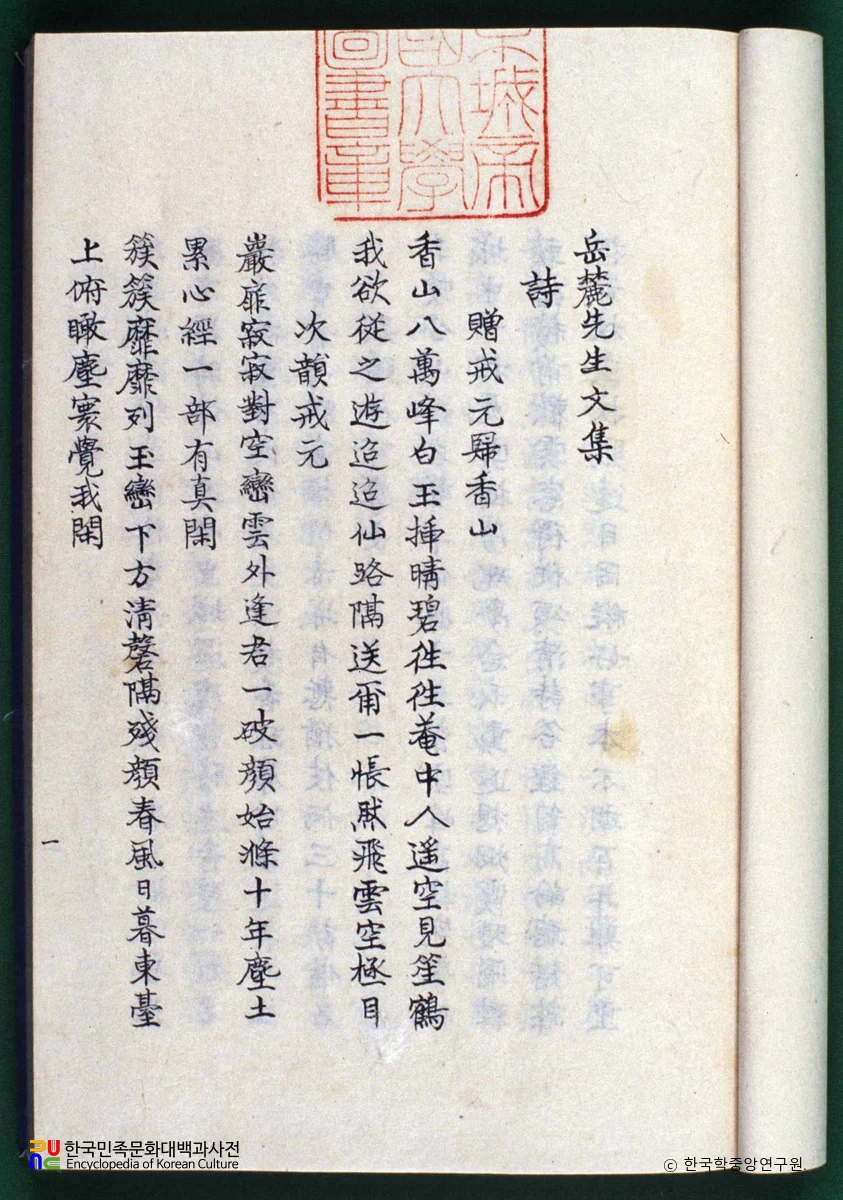 京城帝
國大學
圖書章
岳麓先生文集
詩
贈戒元歸香山
香山八萬峰白玉揷晴碧徃徃菴中人遥空見笙鶴
我欲從之遊迢迢仙路隔送爾一悵然飛雲空極目
次韻戒元
巖扉寂寂對空巒雲外逢君一破顔始滌十年塵土
累心經一部有真閑
簇簇靡靡列玉巒下方清磬隔殘顔春風日暮東臺
上俯瞰塵寰覺我閑
一
한국민족문화대백과사전
Encyclopedia of Korean Culture
© 한국학중앙연구원.